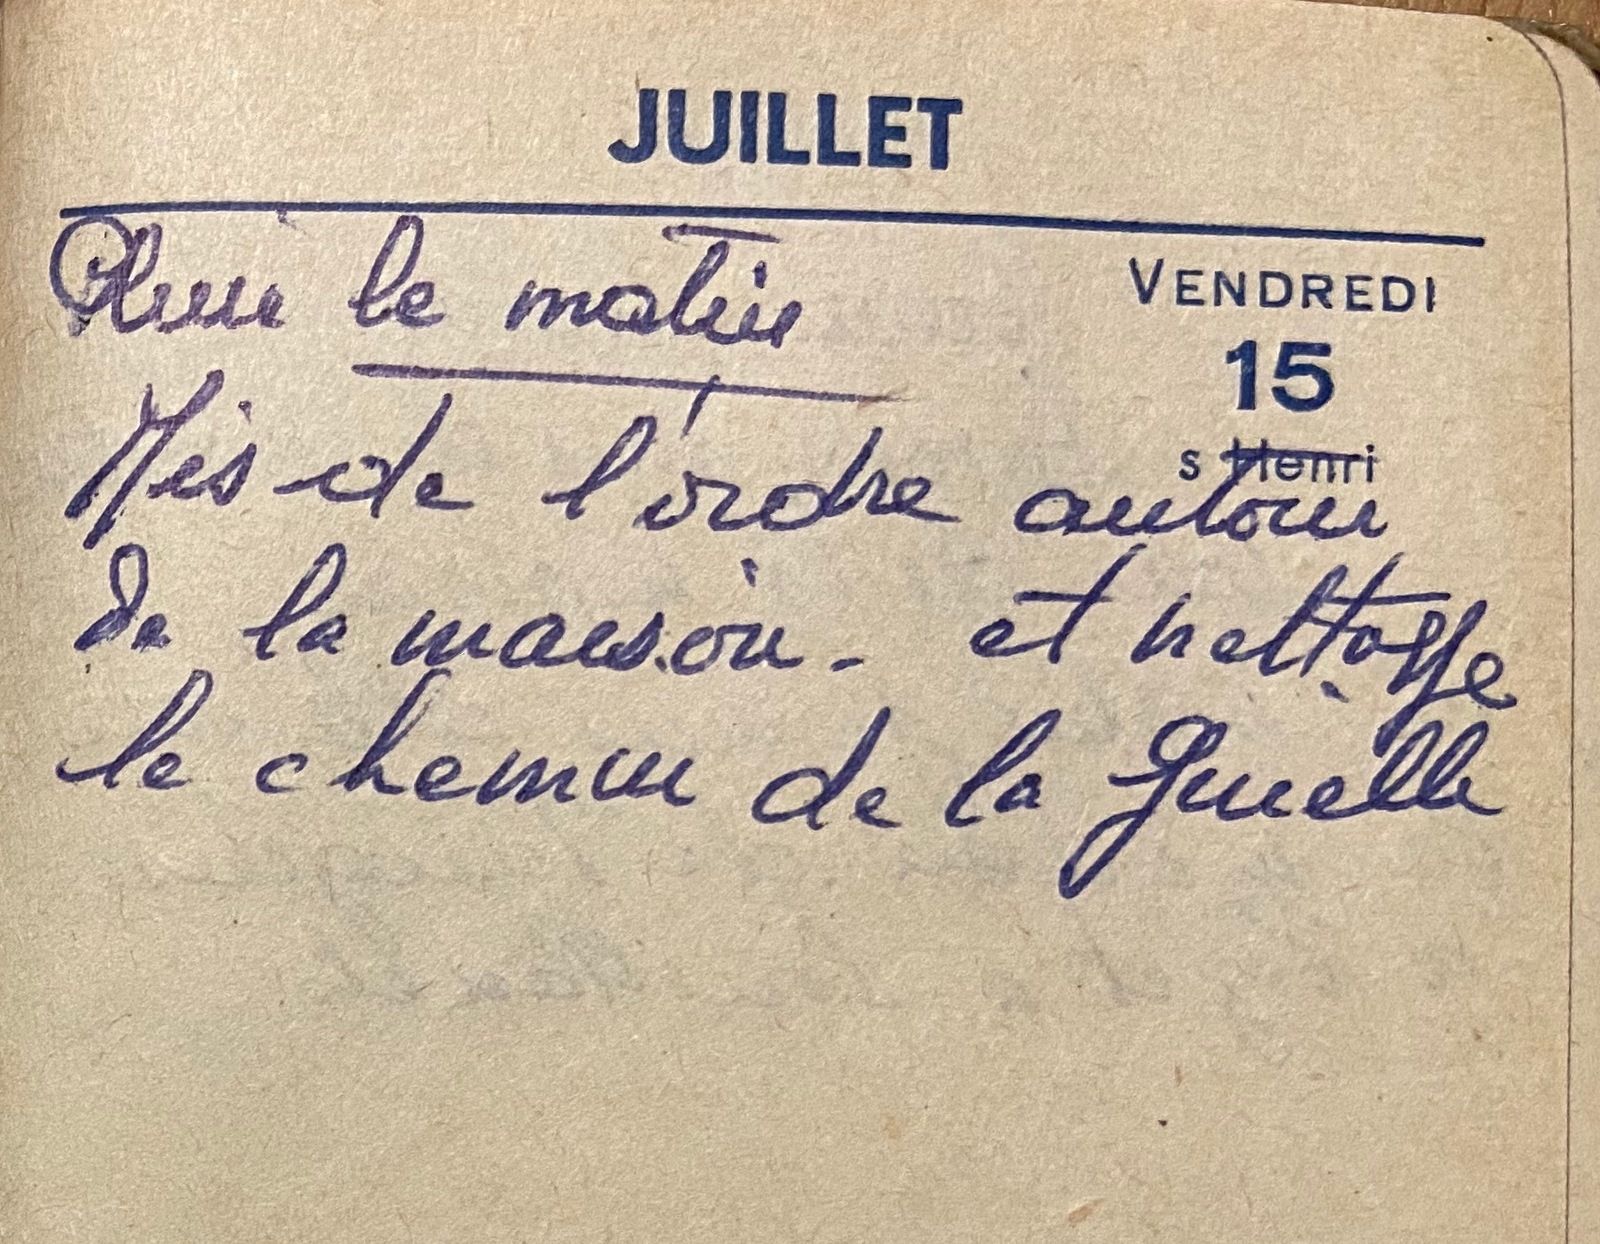 JUILLET
VENDREDI
15
s Henri
Plui le matin
Mis de l'ordre autour
de la maison - et nettoyé
le chemin de la